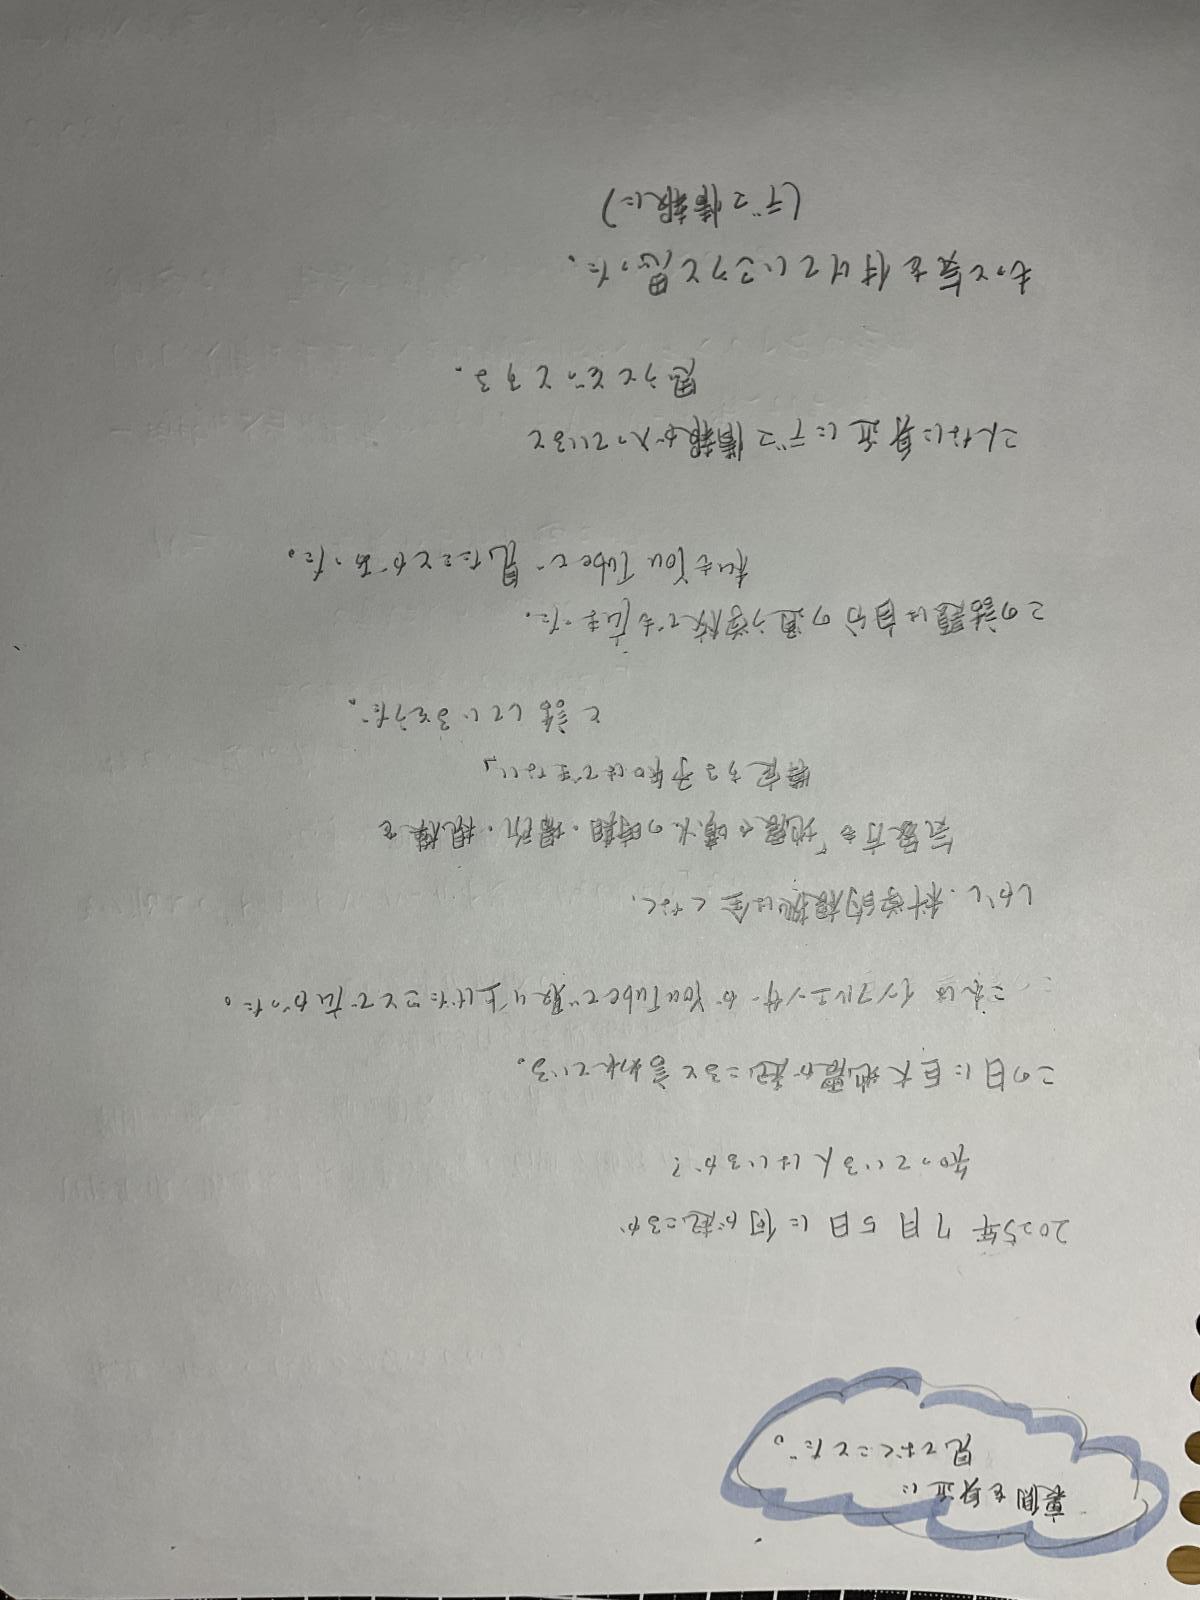 裏側を身近に
見ておくことだ。
2025年7月5日に何が起こるか
知っている人はいるか?
この日に巨大地震が起こると言われている。
これはインフルエンサーがYouTubeで取り上げたことで広がった。
しかし、科学的根拠は全くなく、
気象庁も「地震や噴火の時期・場所・規模を
特定する予知はできない」
と話しているそうだ。
この話題は自分の通う学校でも広まった。
私もYouTubeで見たことがあった。
こんなに身近にデマ情報が入っていると
思うとぞっとする。
もっと気を付けていこうと思った。
(デマ情報に)